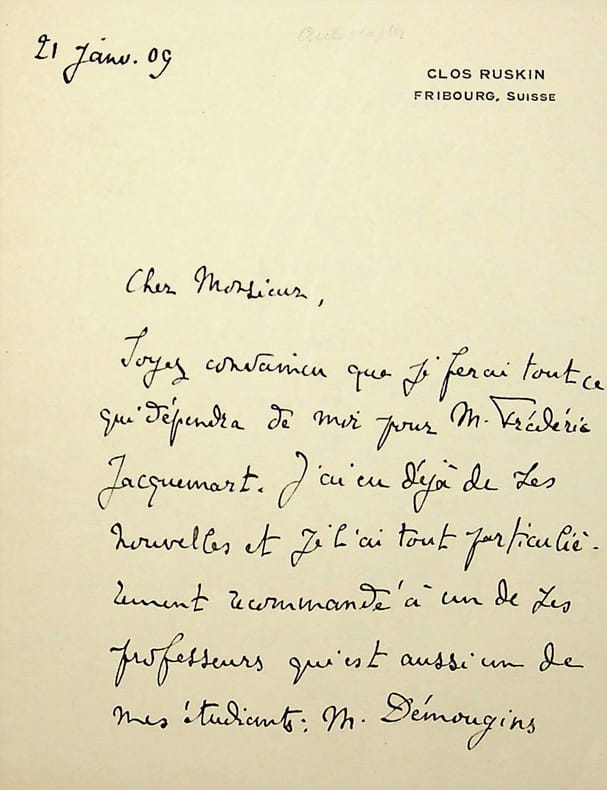 21 janv. 09
CLOS RUSKIN
FRIBOURG, SUISSE
Cher Monsieur,
Soyez convaincu que je ferai tout ce
qui dépendra de moi pour M. Frédéric
Jacquemart. J'ai eu déjà de ses
nouvelles et je l'ai tout particuliè-
rement recommandé à un de ses
professeurs qui est aussi un de
mes étudiants: M. Démougins